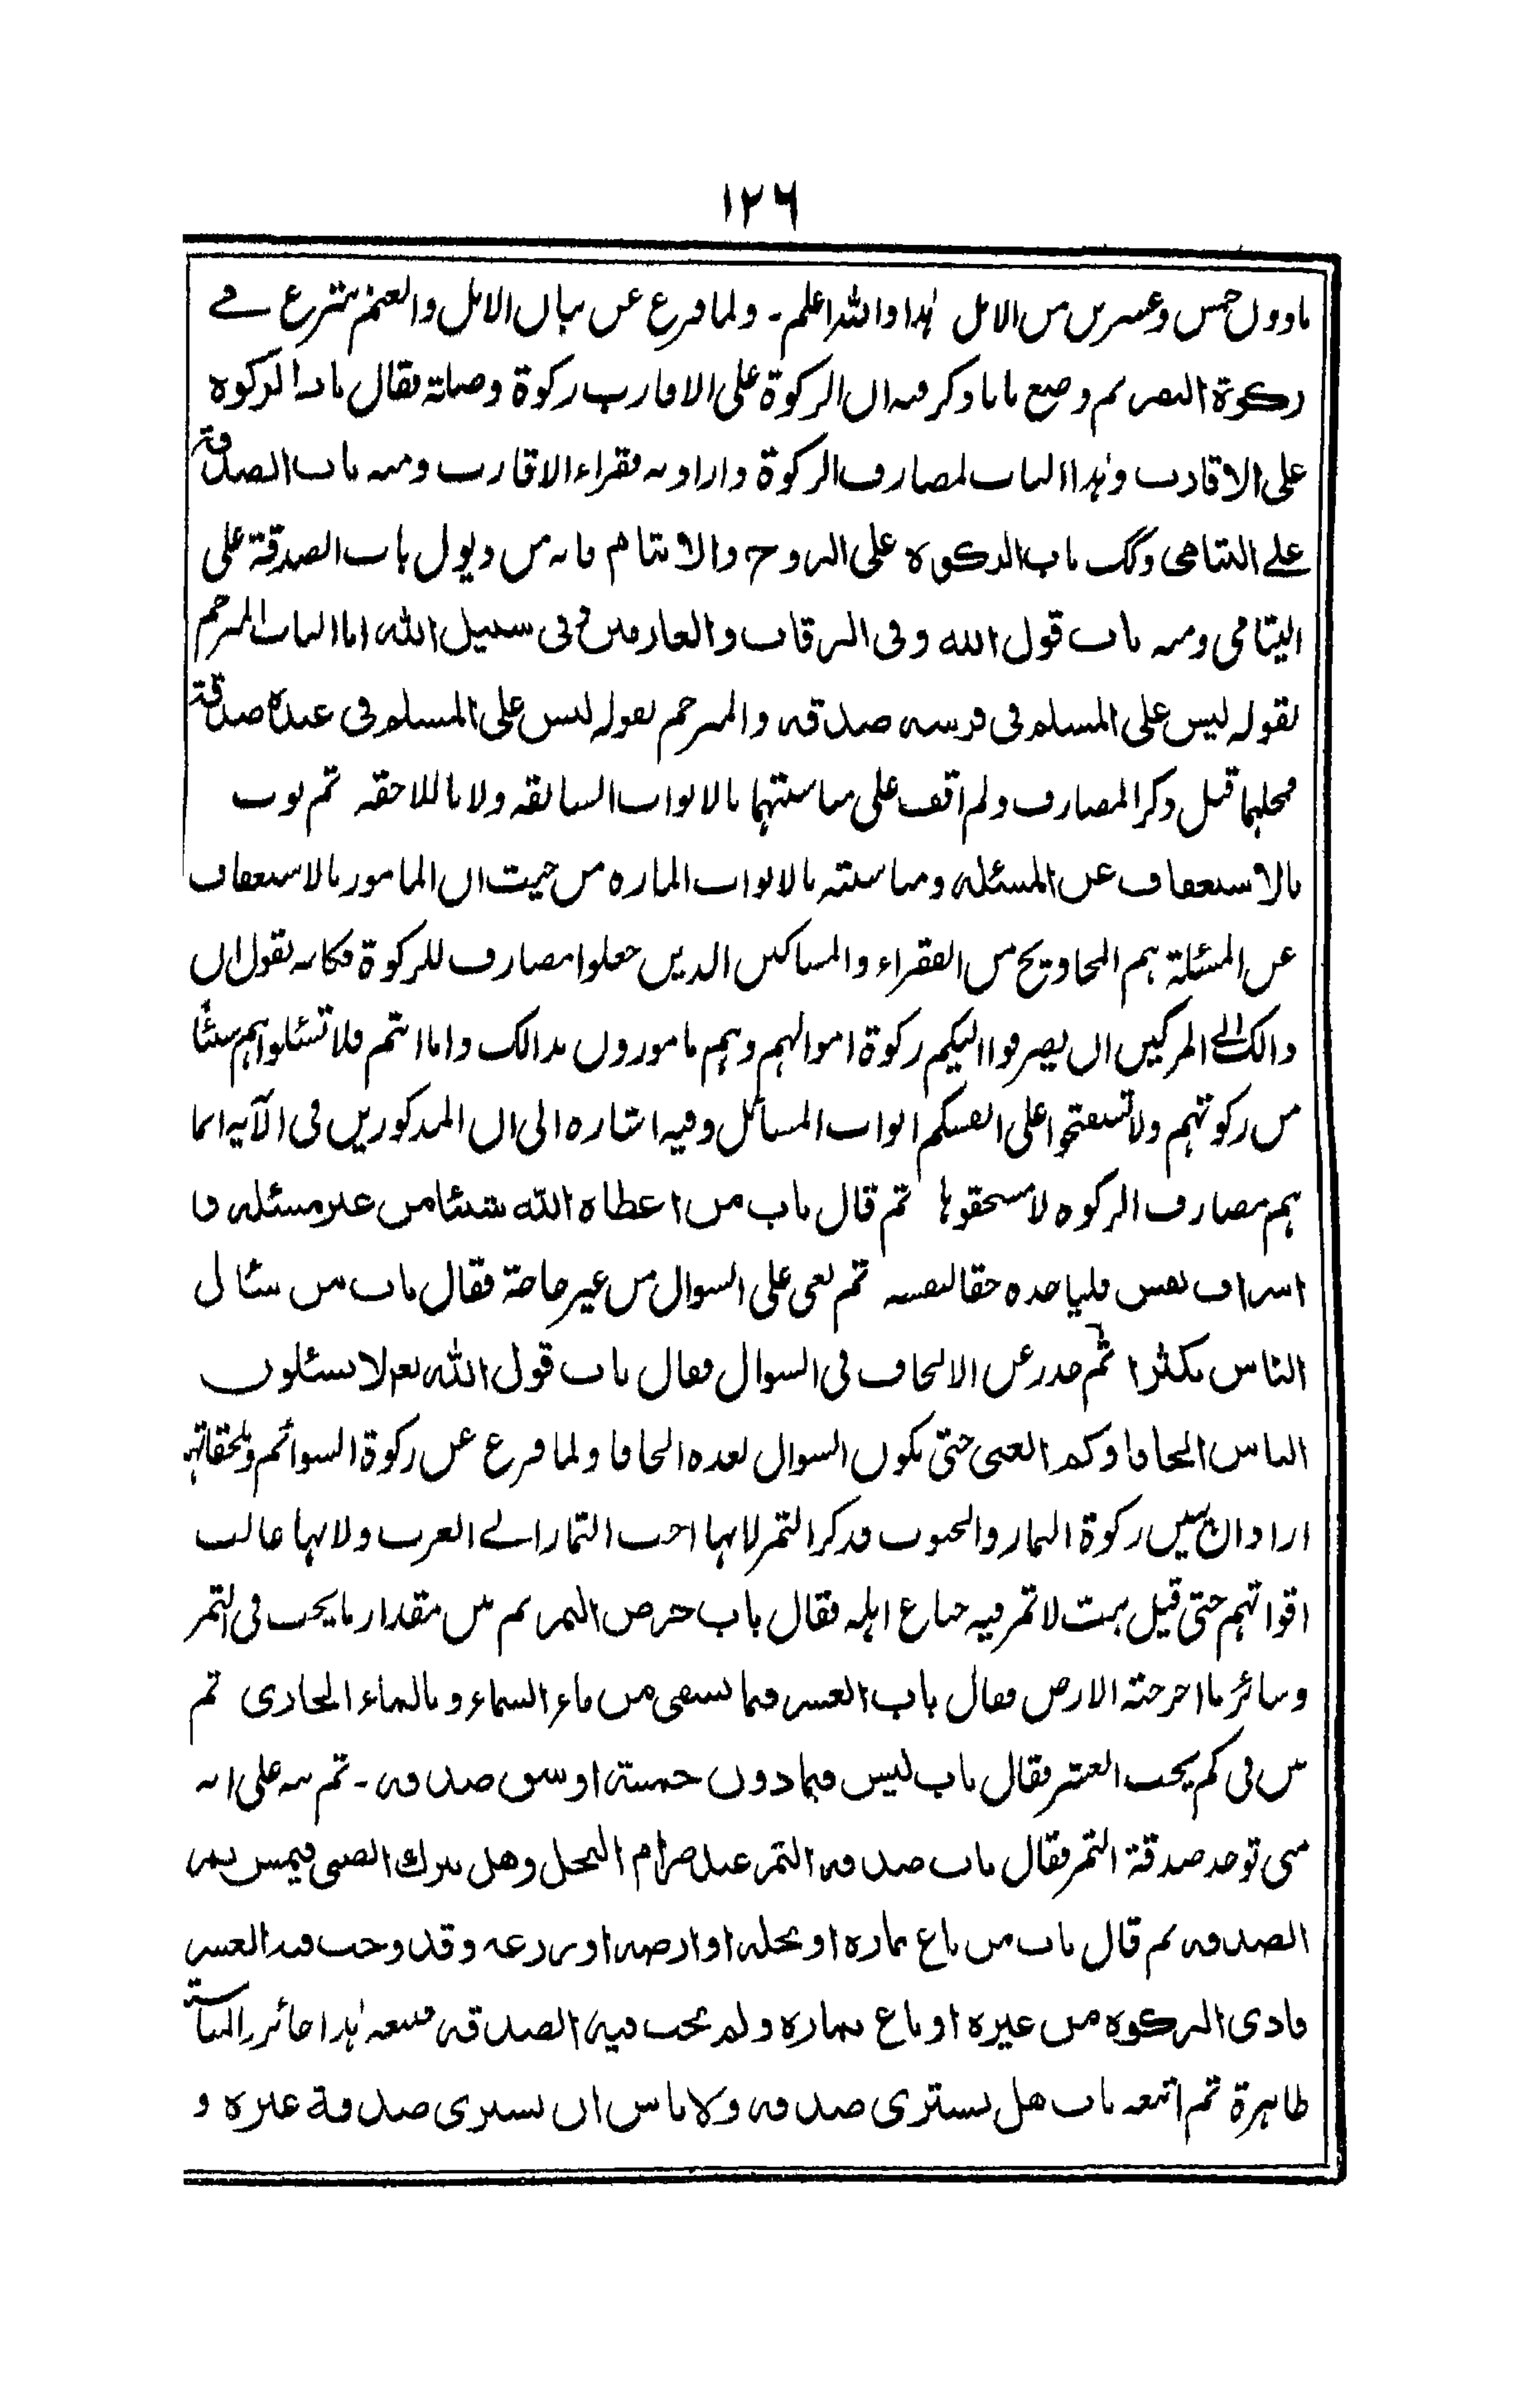 ١٢٦
مادون خمس وعشرين من الابل هذا والله اعلم - ولما فرغ عن بيان الابل والغنم شرع في
زكوة البقر ثم وضع بابا وذكر فيه ان الزكوة على الاقارب زكوة وصلة فقال باب الزكوة
على الاقارب وهذا الباب لمصارف الزكوة واراد به فقراء الاقارب ومنه باب الصدقة
على اليتامى وكك باب الزكوة على الزوج والايتام فانه من ذيول باب الصدقة على
اليتامى ومنه باب قول الله وفى الرقاب والغارمين وفى سبيل الله اما الباب المترجم
بقوله ليس على المسلم فى فرسه صدقه والمترجم بقوله ليس على المسلم فى عبده صدقة
فمحلهما قبل ذكر المصارف ولم اقف على مناسبتهما بالابواب السابقه ولا باللاحقه ثم بوب
بالاستعفاف عن المسئله ومناسبته بالابواب الماره من حيث ان المامور بالاستعفاف
عن المسئلة هم المحاويج من الفقراء والمساكين الذين جعلوا مصارف للزكوة فكانه يقول ان
ذالك الى المزكين ان يصرفوا اليكم زكوة اموالهم وهم مامورون بذالك واما انتم فلا تسئلوا هم شيئا
من زكوتهم ولا تستفتحوا على انفسكم ابواب المسائل وفيه اشاره الى ان المذكورين فى الآية انما
هم مصارف الزكوه لا مستحقوها ثم قال باب من اعطاه الله شيئا من غير مسئله ولا
اسراف نفس فلياخذه حقا لنفسه ثم نعى على السوال من غير حاجة فقال باب من سئال
الناس تكثرا ثم حذر عن الالحاف فى السوال فقال باب قول الله تعم لا يسئلون
الناس الحافا وكم الغنى حتى يكون السوال بعده الحافا ولما فرغ عن زكوة السوائم وملحقاتها
اراد ان يبين زكوة الثمار والحبوب فذكر التمر لانها احب الثمار الى العرب ولانها غالب
اقواتهم حتى قيل بيت لا تمر فيه جياع اهله فقال باب خرص التمر ثم بين مقدار ما يجب فى التمر
وسائر ما اخرجته الارض فقال باب العشر فيما يسقى من ماء السماء وبالماء الجارى ثم
بين فى كم يجب العشر فقال باب ليس فيما دون خمسة اوسق صدقه - ثم نبه على انه
متى توخذ صدقة التمر فقال باب صدقه التمر عند صرام النخل وهل يترك الصبى فيمس تمر
الصدقه ثم قال باب من باع ثماره او نخله او ارضه او زرعه وقد وجب فيه العشر
فادى الزكوه من غيره او باع ثماره ولم تجب فيه الصدقه فبيعه هذا جائز والمناسبة
ظاهرة ثم اتبعه باب هل يشترى صدقه ولا باس ان يشترى صدقة غيره و